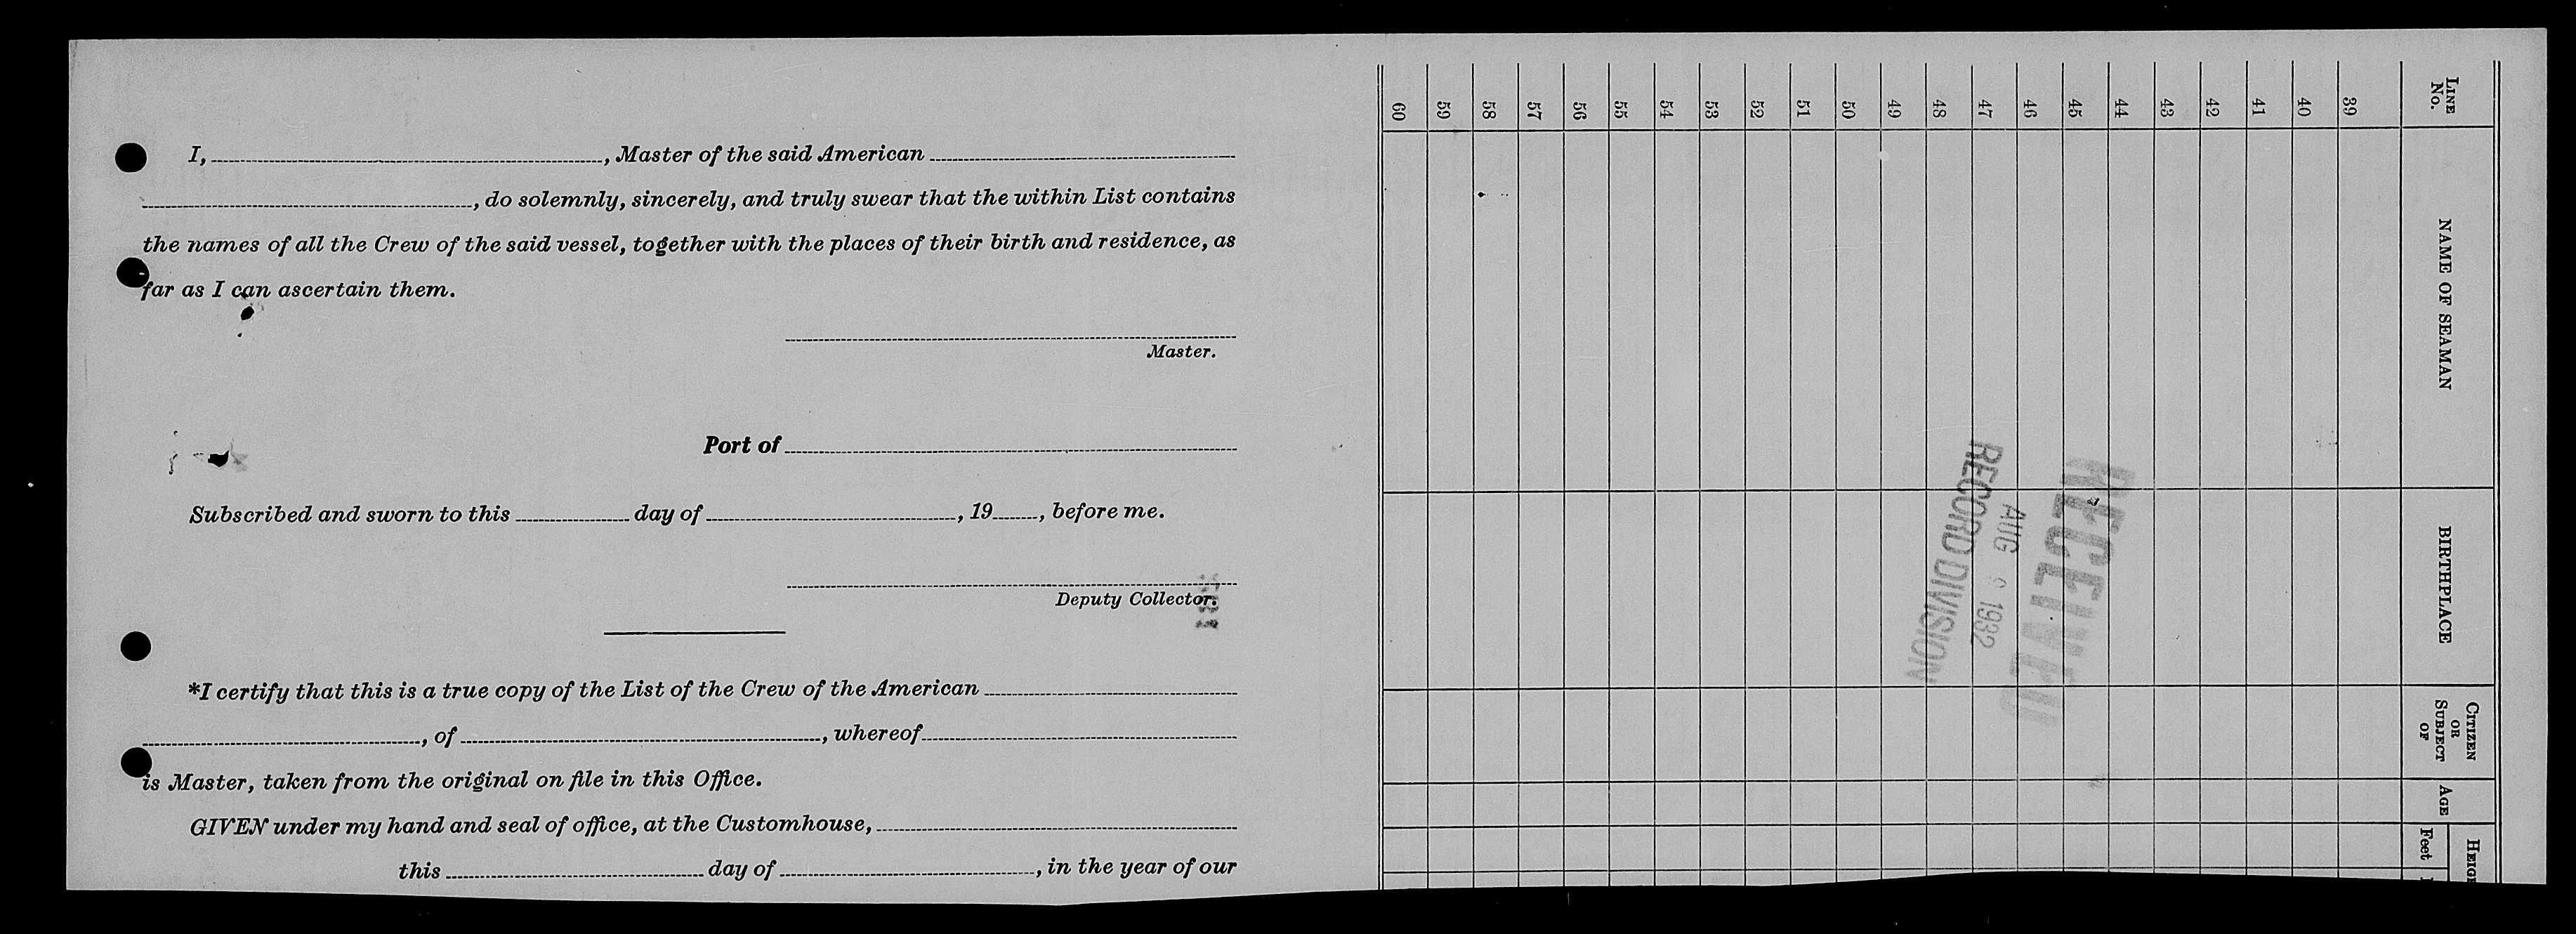 I, , Master of the said American
, do solemnly, sincerely, and truly swear that the within List contains
the names of all the Crew of the said vessel, together with the places of their birth and residence, as
far as I can ascertain them.
Master.
Port of
Subscribed and sworn to this day of , 19 , before me.
Deputy Collector.
*I certify that this is a true copy of the List of the Crew of the American
, of , whereof
is Master, taken from the original on file in this Office.
GIVEN under my hand and seal of office, at the Customhouse,
this day of , in the year of our
LINE No.
NAME OF SEAMAN
BIRTHPLACE
CITIZEN OR SUBJECT OF
AGE
Feet
39
40
41
42
43
44
45
46
47
48
49
50
51
52
53
54
55
56
57
58
59
60
RECEIVED
AUG 1932
RECORD DIVISION